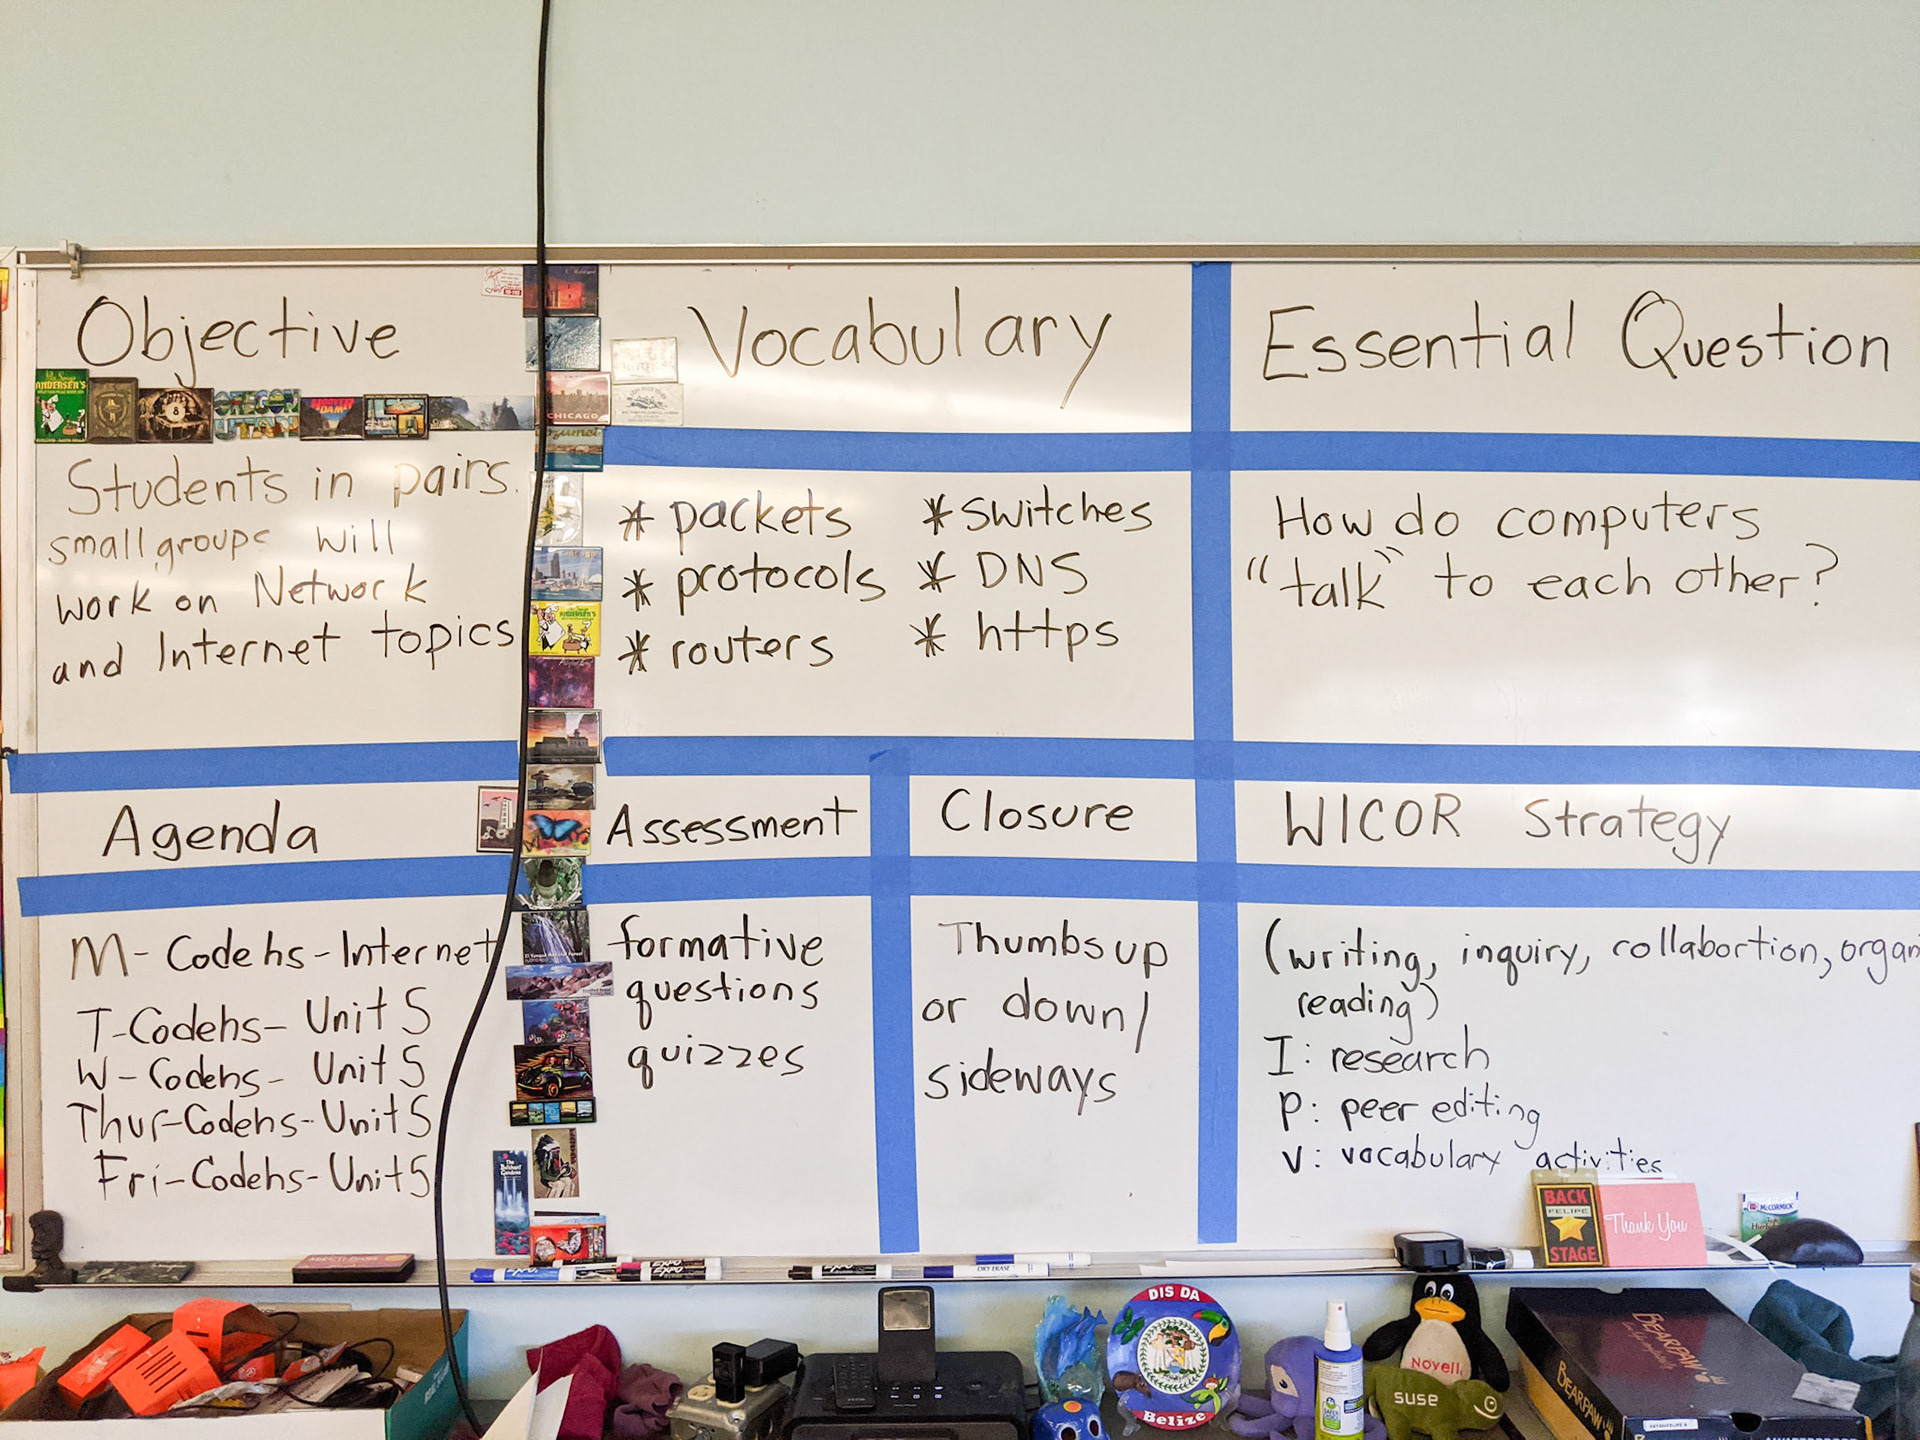 Objective
Students in pairs.
small groups will
work on Network
and Internet topics
Vocabulary
* packets
* protocols
* routers
* switches
* DNS
* https
Essential Question
How do computers
"talk" to each other?
Agenda
M- Codehs-Internet
T-Codehs- Unit 5
W-Codehs- Unit 5
Thur-Codehs-Unit 5
Fri-Codehs-Unit 5
Assessment
formative
questions
quizzes
Closure
Thumbs up
or down/
sideways
WICOR Strategy
(writing, inquiry, collabortion, organ
reading)
I: research
P: peer editing
V: vocabulary activities
ANDERSEN'S
HOOVER
DAM
CHICAGO
ANDERSEN'S
BACK
FELIPE
STAGE
Thank You
McCORMICK
EXPO
EXPO
DRY ERASE
DIS DA
Belize
Novell
suse
BEARPAW
BEARPAW